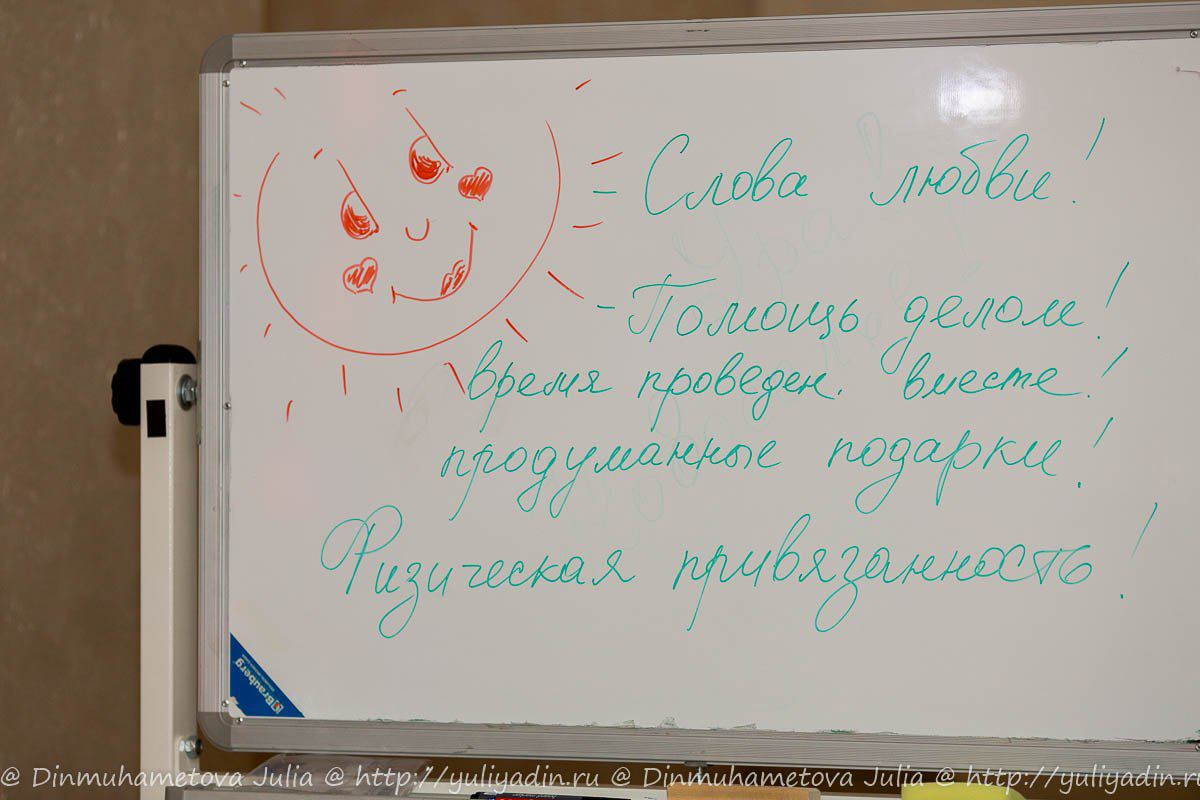 - Слова любви!
- Помощь делом!
время проведен. вместе!
продуманные подарки!
Физическая привязанность!
Brauberg
@ Dinmuhametova Julia @ http://yuliyadin.ru @ Dinmuhametova Julia @ http://yuliyadin.ru